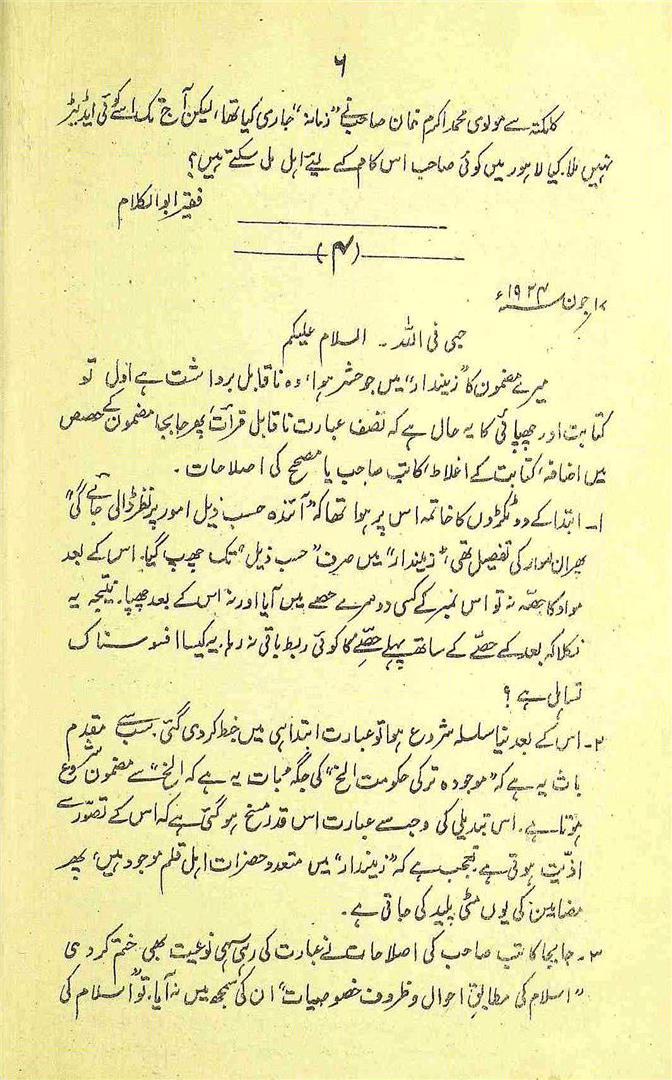 ۶
کلکتہ سے مولوی محمد اکرم خان صاحب نے "زمانہ" جاری کیا تھا، لیکن آج تک اسے کوئی ایڈیٹر
نہیں ملا۔ کیا لاہور میں کوئی صاحب اس کام کے لیئے اہل مل سکتے ہیں؟
فقیر ابوالکلام
(۴)
جون ۱۹۲۴ء
حبی فی اللہ ۔ السلام علیکم
میرے مضمون کا "زمیندار" میں جو حشر ہوا، وہ ناقابل برداشت ہے اول تو
کتابت اور چھپائی کا یہ حال ہے کہ نصف عبارت ناقابل قرأت، پھر جابجا مضمون کے حصص
میں اضافہ، کتابت کے اغلاط، کاتب صاحب یا مصحح کی اصلاحات ۔
۱۔ ابتدا کے دو ٹکڑوں کا خاتمہ اس پر ہوا تھا کہ "آئندہ حسب ذیل امور پر نظر ڈالی جائے گی"
پھر ان امور کی تفصیل تھی، "زمیندار" میں صرف "حسب ذیل" تک چھپ گیا۔ اس کے بعد
مواد کا حصہ نہ تو اس نمبر کے کسی دوسرے حصے میں آیا اور نہ اس کے بعد چھپا۔ نتیجہ یہ
نکلا کہ بعد کے حصے کے ساتھ پہلے حصے کا کوئی ربط باقی نہ رہا، یہ کیسا افسوسناک
تساہل ہے ؟
۲۔ اس کے بعد نیا سلسلہ شروع ہوا تو عبارت ابتدا ہی میں خبط کردی گئی۔ "سب سے مقدم
بات یہ ہے کہ "موجودہ ترکی حکومت الخ" کی جگہ "بات یہ ہے کہ الخ" سے مضمون شروع
ہوتا ہے۔ اس تبدیلی کی وجہ سے عبارت اس قدر مسخ ہو گئی ہے کہ اس کے تصوّر سے
اذیّت ہوتی ہے۔ تعجب ہے کہ "زمیندار" میں متعدد حضرات اہل قلم موجود ہیں، پھر
مضامین کی یوں مٹی پلید کی جاتی ہے۔
۳۔ جابجا کاتب صاحب کی اصلاحات نے عبارت کی رہی سہی نوعیت بھی ختم کردی
"اسلام کی مطابقِ احوال و ظروف خصوصیات" ان کی سمجھ میں نہ آیا، تو "اسلام کی